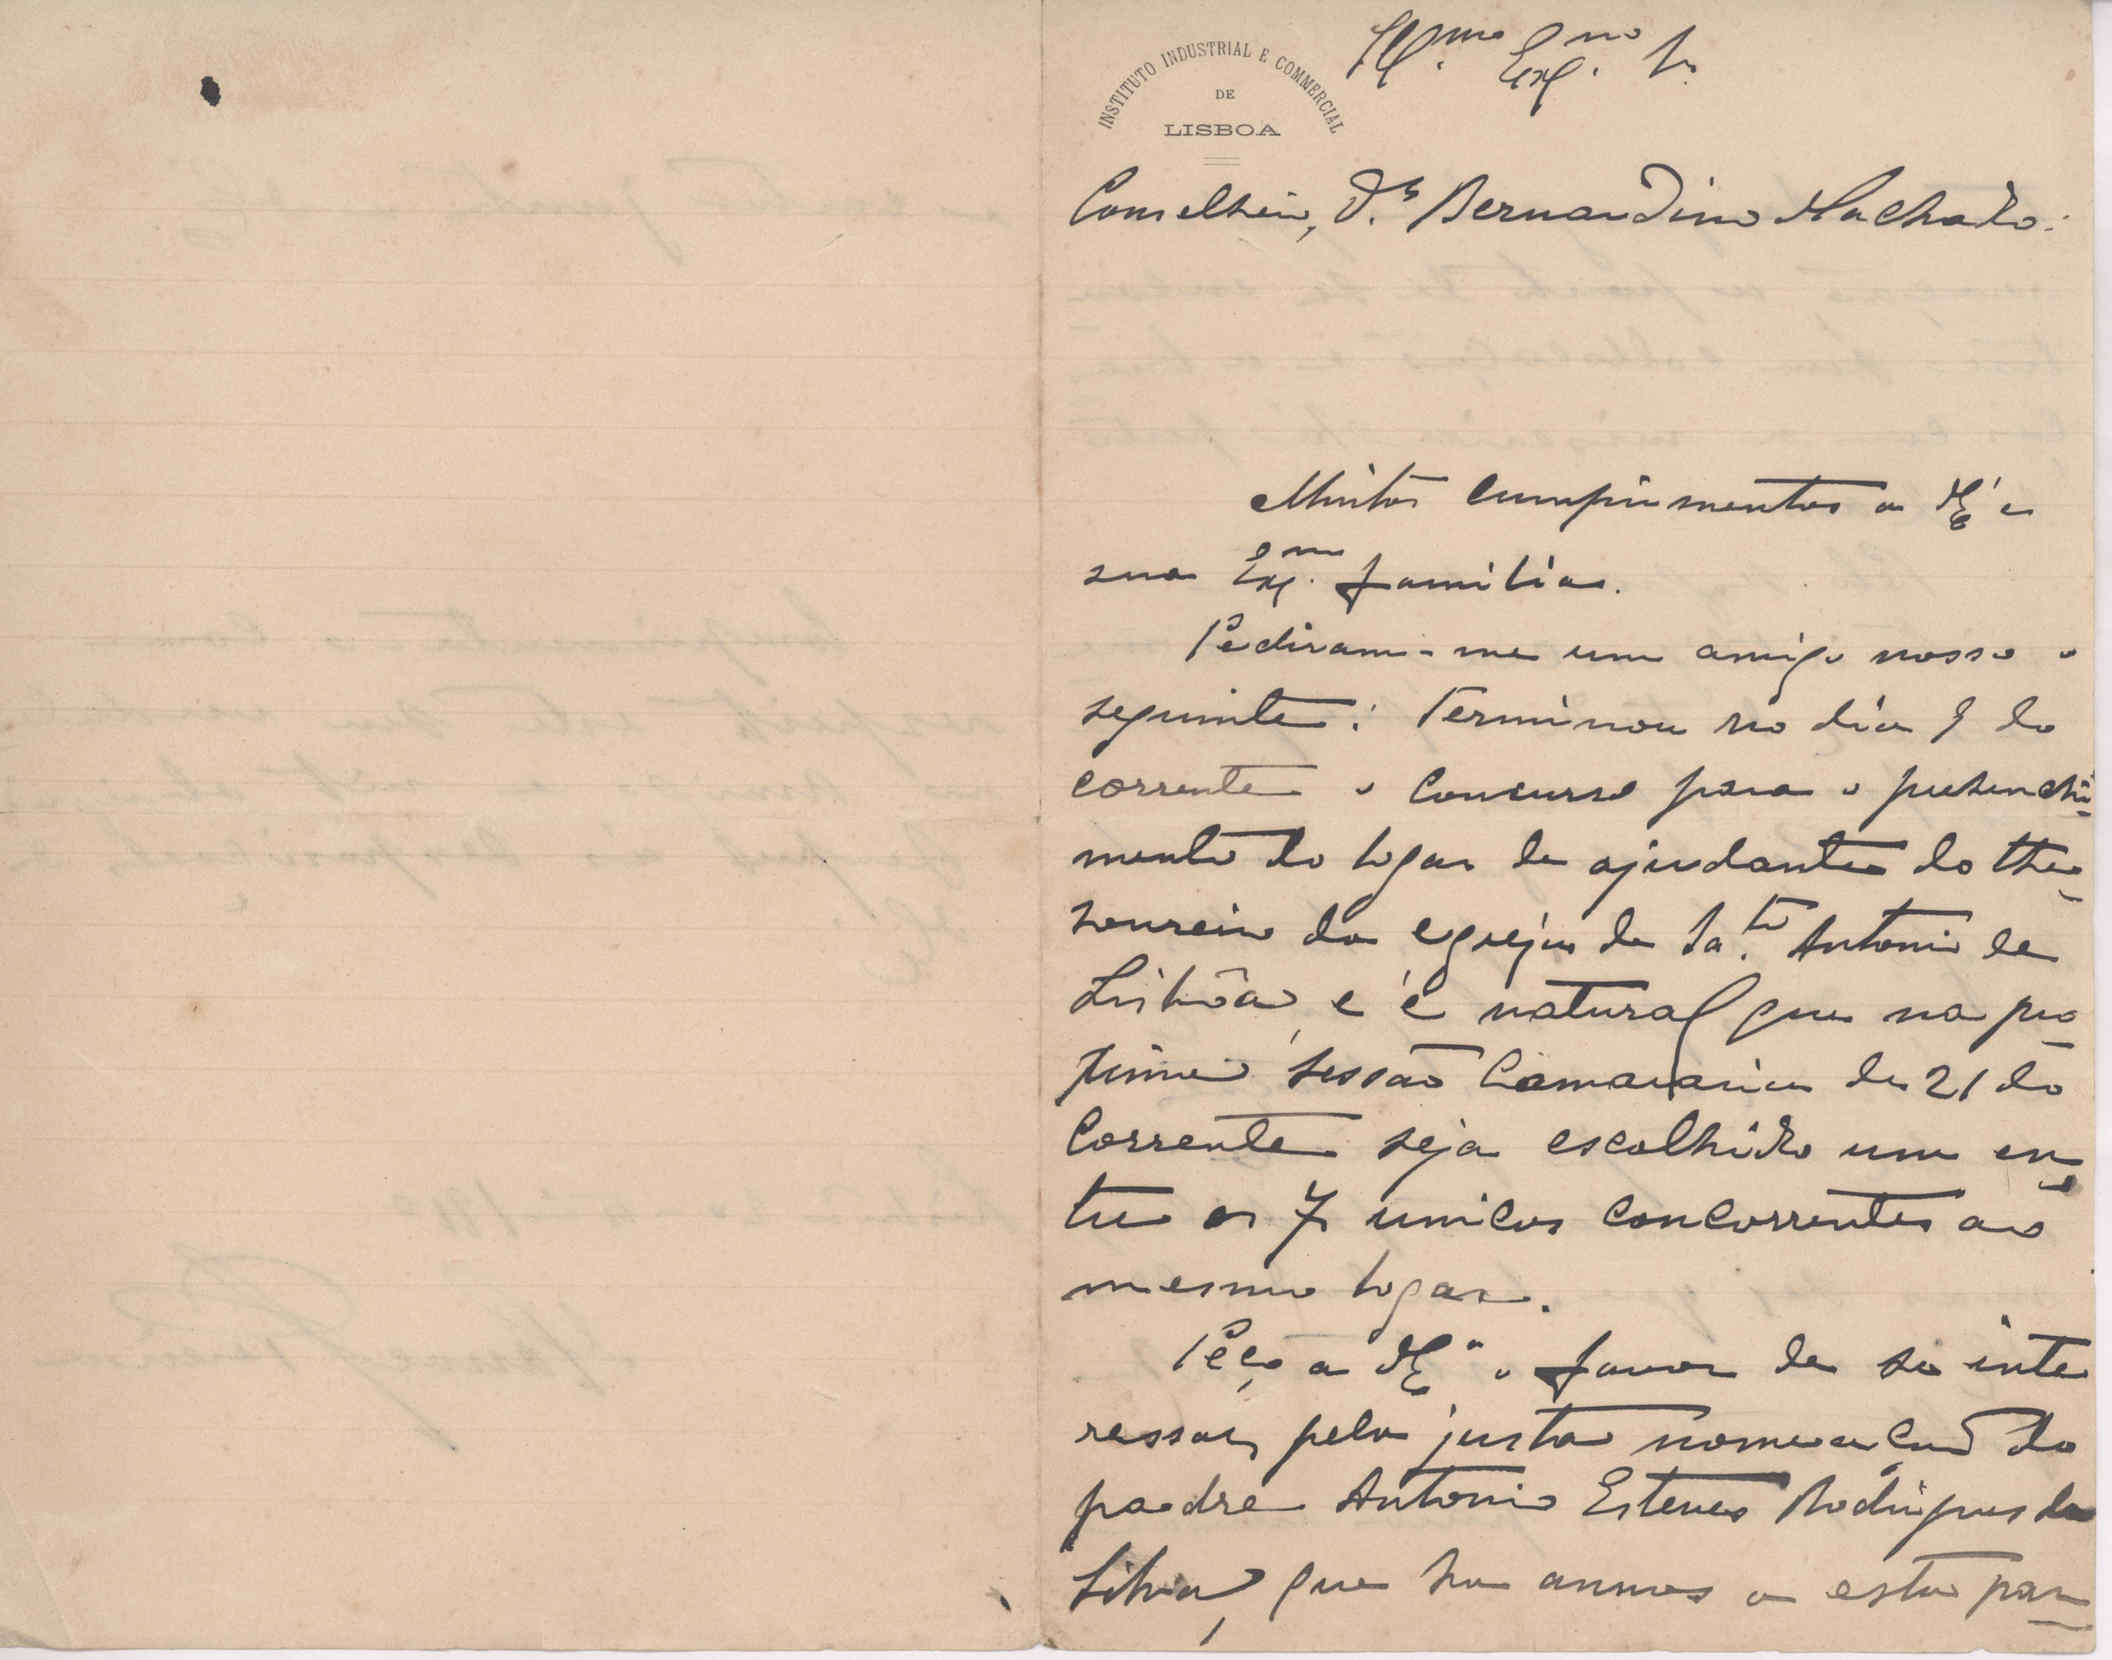 INSTITUTO INDUSTRIAL E COMMERCIAL
DE
LISBOA
Ill.mo Ex.mo Sr.
Conselheiro, Dr. Bernardino Machado.
Muitos cumprimentos a V.E. e
sua Ex.ma familia.
Pediram-me um amigo nosso o
seguinte: Terminou no dia 9 do
corrente o concurso para o prehenchi-
mento do logar de ajudante do the-
soureiro da egreja de Sa.to Antonio de
Lisbôa, e é natural que na pro-
xima sessão camararia de 21 do
corrente seja escolhido um en-
tre os 7 unicos concorrentes ao
mesmo logar.
Peço a V.E.a o favor de se inte
ressar, pela justa nomeação do
padre Antonio Esteves Rodrigues da
Silva, que ha annos a esta par-